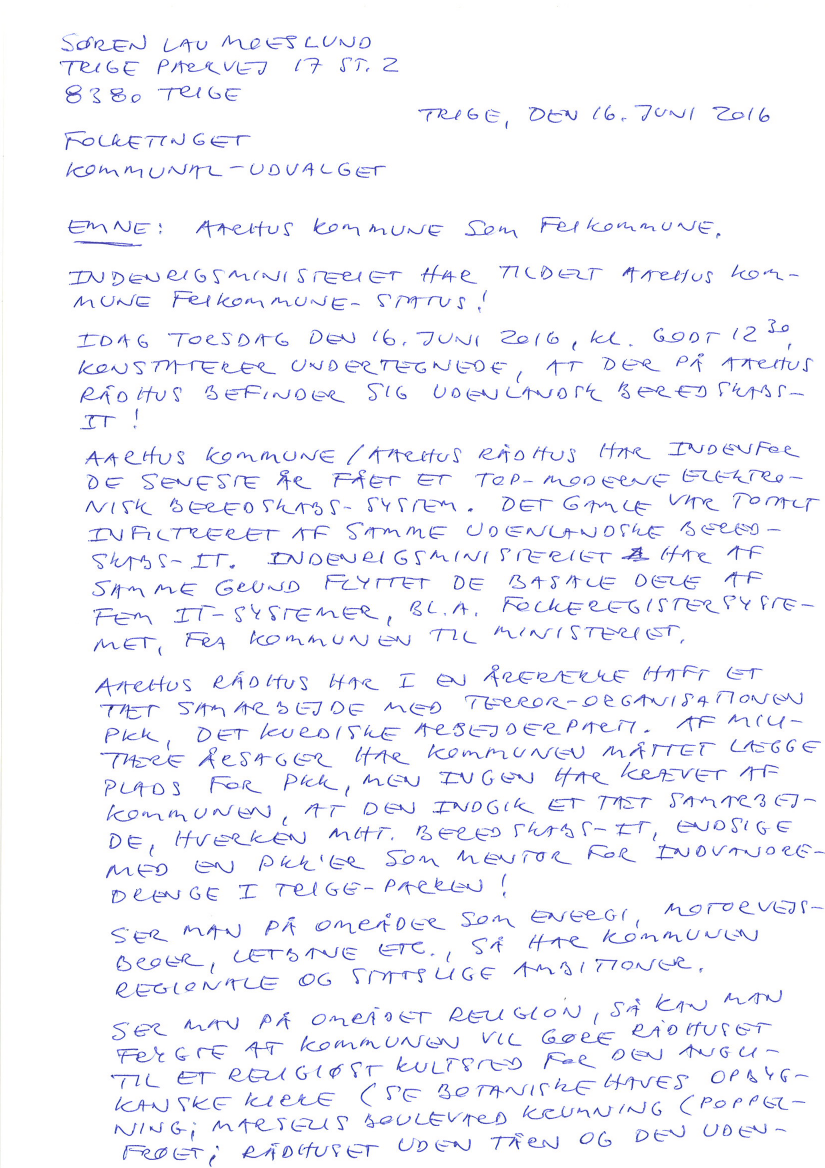 SØREN LAU MOESLUND
TRIGE PARKVEJ 17 ST. 2
8380 TRIGE
TRIGE, DEN 16. JUNI 2016
FOLKETINGET
KOMMUNAL-UDVALGET
EMNE: AARHUS KOMMUNE SOM FRIKOMMUNE.
INDENRIGSMINISTERIET HAR TILDELT AARHUS KOM-
MUNE FRIKOMMUNE-STATUS!
IDAG TORSDAG DEN 16. JUNI 2016, KL. GODT 12 30,
KONSTATERER UNDERTEGNEDE, AT DER PÅ AARHUS
RÅDHUS BEFINDER SIG UDENLANDSK BEREDSKABS-
IT!
AARHUS KOMMUNE / AARHUS RÅDHUS HAR INDENFOR
DE SENESTE ÅR FÅET ET TOP-MODERNE ELEKTRO-
NISK BEREDSKABS-SYSTEM. DET GAMLE VAR TOTALT
INFILTRERET AF SAMME UDENLANDSKE BERED-
SKABS-IT. INDENRIGSMINISTERIET HAR AF
SAMME GRUND FLYTTET DE BASALE DELE AF
FEM IT-SYSTEMER, BL.A. FOLKEREGISTERSYSTE-
MET, FRA KOMMUNEN TIL MINISTERIET.
AARHUS RÅDHUS HAR I EN ÅRERÆKKE HAFT ET
TÆT SAMARBEJDE MED TERROR-ORGANISATIONEN
PKK, DET KURDISKE ARBEJDERPARTI. AF MILI-
TÆRE ÅRSAGER HAR KOMMUNEN MÅTTET LÆGGE
PLADS FOR PKK, MEN INGEN HAR KRÆVET AF
KOMMUNEN, AT DEN INDGIK ET TÆT SAMARBEJ-
DE, HVERKEN MHT. BEREDSKABS-IT, ENDSIGE
MED EN PKK'ER SOM MENTOR FOR INDVANDRE-
DRENGE I TRIGE-PARKEN!
SER MAN PÅ OMRÅDER SOM ENERGI, MOTORVEJS-
BROER, LETBANE ETC., SÅ HAR KOMMUNEN
REGIONALE OG STATSLIGE AMBITIONER.
SER MAN PÅ OMRÅDET RELIGION, SÅ KAN MAN
FRYGTE AT KOMMUNEN VIL GØRE RÅDHUSET
TIL ET RELIGIØST KULTSTED FOR DEN ANGLI-
KANSKE KIRKE (SE BOTANISKE HAVES OPBYG-
NING; MARSELIS BOULEVARD KRUMNING (POPPEL-
FRØET; RÅDHUSET UDEN TÅRN OG DEN UDEN-